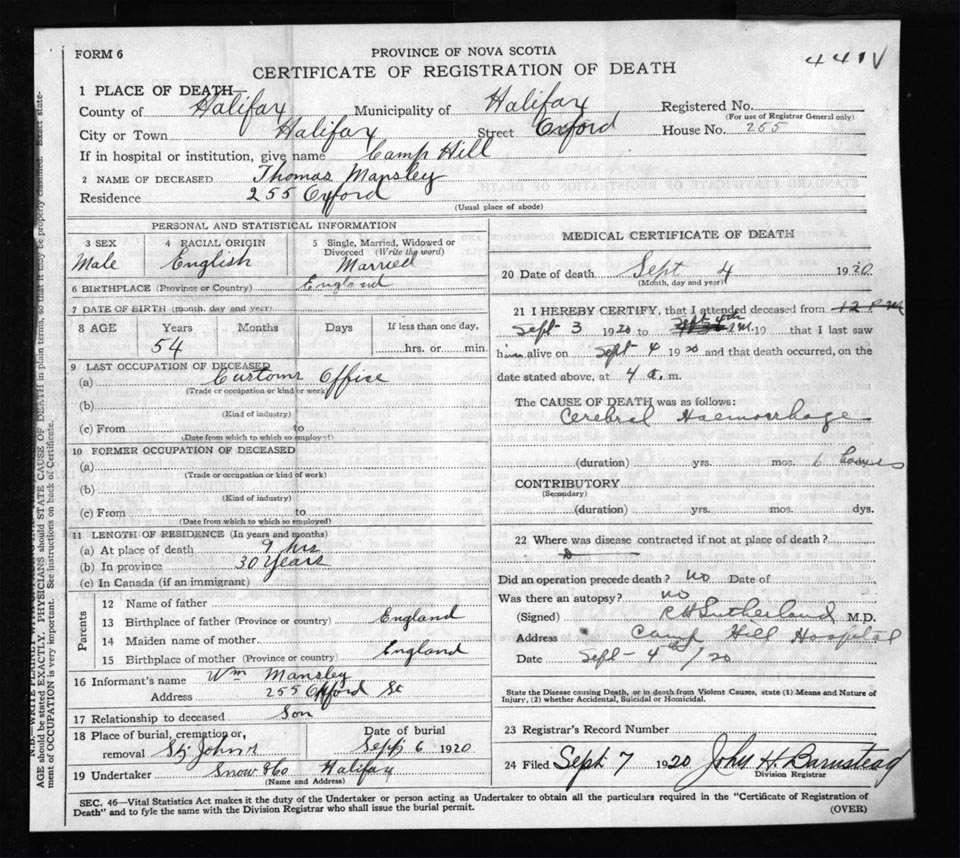 FORM 6
PROVINCE OF NOVA SCOTIA
4410
CERTIFICATE OF REGISTRATION OF DEATH
1 PLACE OF DEATH
County of Halifax Municipality of Halifax Registered No.
(For use of Registrar General only)
City or Town Halifax Street Oxford House No. 255
If in hospital or institution, give name Camp Hill
2 NAME OF DECEASED Thomas Mansley
Residence 255 Oxford
(Usual place of abode)
PERSONAL AND STATISTICAL INFORMATION
3 SEX 4 RACIAL ORIGIN 5 Single, Married, Widowed or
Divorced (Write the word)
Male English Married
6 BIRTHPLACE (Province or Country) England
7 DATE OF BIRTH (month, day and year)
8 AGE Years Months Days If less than one day,
54 hrs. or min.
9 LAST OCCUPATION OF DECEASED
(a) Customs Office
(Trade or occupation or kind or work)
(b)
(Kind of industry)
(c) From to
(Date from which to which so employed)
10 FORMER OCCUPATION OF DECEASED
(a)
(Trade or occupation or kind of work)
(b)
(Kind of industry)
(c) From to
(Date from which to which so employed)
11 LENGTH OF RESIDENCE (In years and months)
(a) At place of death 9 hrs
(b) In province 30 Years
(c) In Canada (if an immigrant)
Parents
12 Name of father
13 Birthplace of father (Province or country) England
14 Maiden name of mother
15 Birthplace of mother (Province or country) England
16 Informant's name Wm Mansley
Address 255 Oxford St
17 Relationship to deceased Son
18 Place of burial, cremation or, Date of burial
removal St. Johns Sept 6 1920
19 Undertaker Snow & Co Halifax
(Name and Address)
MEDICAL CERTIFICATE OF DEATH
20 Date of death Sept 4 1920
(Month, day and year)
21 I HEREBY CERTIFY, that I attended deceased from 12 P.M.
Sept 3 1920 to Sept 4th 19 that I last saw
him alive on Sept 4 1920 and that death occurred, on the
date stated above, at 4 a. m.
The CAUSE OF DEATH was as follows:
Cerebral Haemorrhage
(duration) yrs. mos. 6 hours
CONTRIBUTORY
(Secondary)
(duration) yrs. mos. dys.
22 Where was disease contracted if not at place of death?
Did an operation precede death? no Date of
Was there an autopsy? no
(Signed) R H Sutherland M.D.
Address Camp Hill Hospital
Date Sept 4th/20
State the Disease causing Death, or in death from Violent Causes, state (1) Means and Nature of
Injury, (2) whether Accidental, Suicidal or Homicidal.
23 Registrar's Record Number
24 Filed Sept 7 1920 John H. Barnstead
Division Registrar
SEC. 46—Vital Statistics Act makes it the duty of the Undertaker or person acting as Undertaker to obtain all the particulars required in the "Certificate of Registration of
Death" and to fyle the same with the Division Registrar who shall issue the burial permit.
(OVER)
AGE should be stated EXACTLY. PHYSICIANS should STATE CAUSE OF DEATH in plain terms, so that it may be properly classified. Exact state-
ment of OCCUPATION is very important. See instructions on back of Certificate.